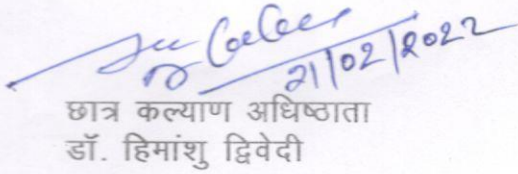 21/02/2022
छात्र कल्याण अधिष्ठाता
डॉ. हिमांशु द्विवेदी